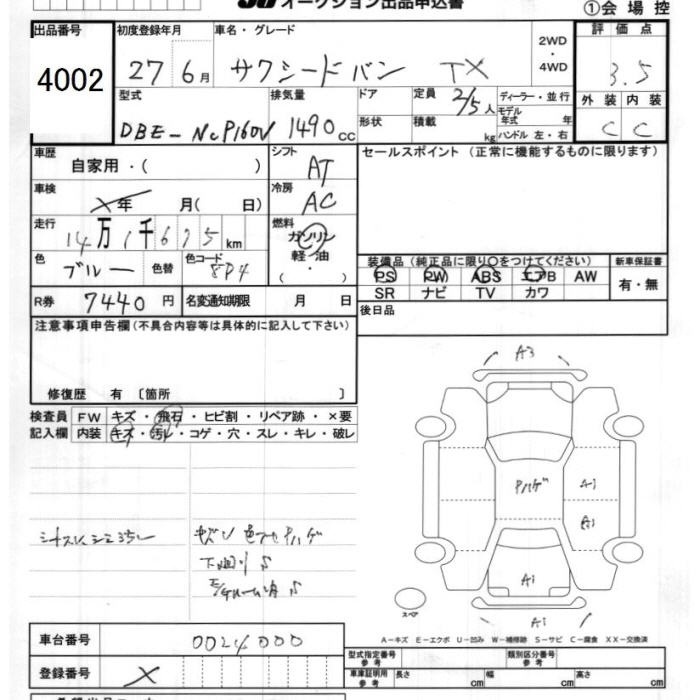 オークション出品申込書
①会場控
出品番号 初度登録年月 車名・グレード 2WD・4WD 評価点
4002 27 6月 サクシードバン TX 3.5
型式 排気量 ドア 定員 2/5人 ディーラー・並行 外装 内装
DBE-NCP160V 1490cc 形状 積載 kg モデル年式 年 ハンドル 左・右 C C
車歴 自家用・( ) シフト AT セールスポイント(正常に機能するものに限ります)
車検 X 年 月( 日) 冷房 AC
走行 14万1千675km 燃料 ガソリン 軽油 ( ・ )
色 ブルー 色替 色コード 8P4
装備品(純正品に限り○をつけてください) 新車保証書
PS PW ABS エアB AW 有・無
SR ナビ TV カワ
R券 7440円 名変通知期限 月 日 後日品
注意事項申告欄(不具合内容等は具体的に記入して下さい)
修復歴 有〔箇所 〕
検査員 FW キズ・飛石・ヒビ割・リペア跡・×要
記入欄 内装 キズ・汚れ・コゲ・穴・スレ・キレ・破レ
A3
Pハゲ A1
A1
A1
A1
キズU 色アセ Pハゲ
下廻り S
S
スペア
A-キズ E-エクボ U-凹み W-補修跡 S-サビ C-腐食 XX-交換済
車台番号 0024000
型式指定番号 参考 類別区分番号 参考
登録番号 X 車庫証明用 参考 長さ cm 幅 cm 高さ cm